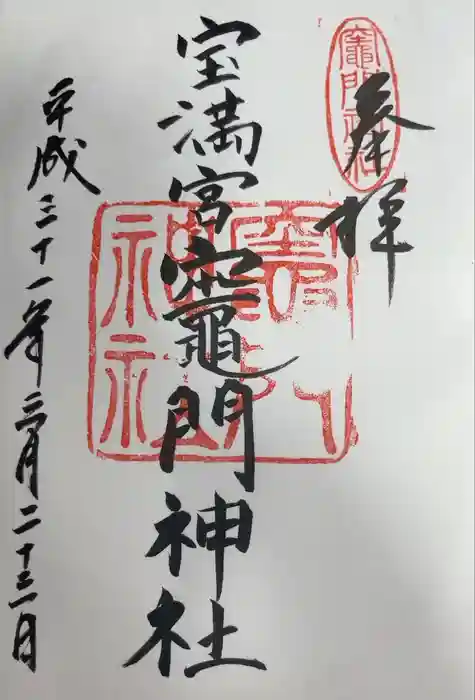 奉拝
竈門神社
宝満宮竈門神社
竈門神社
平成三十一年三月二十三日